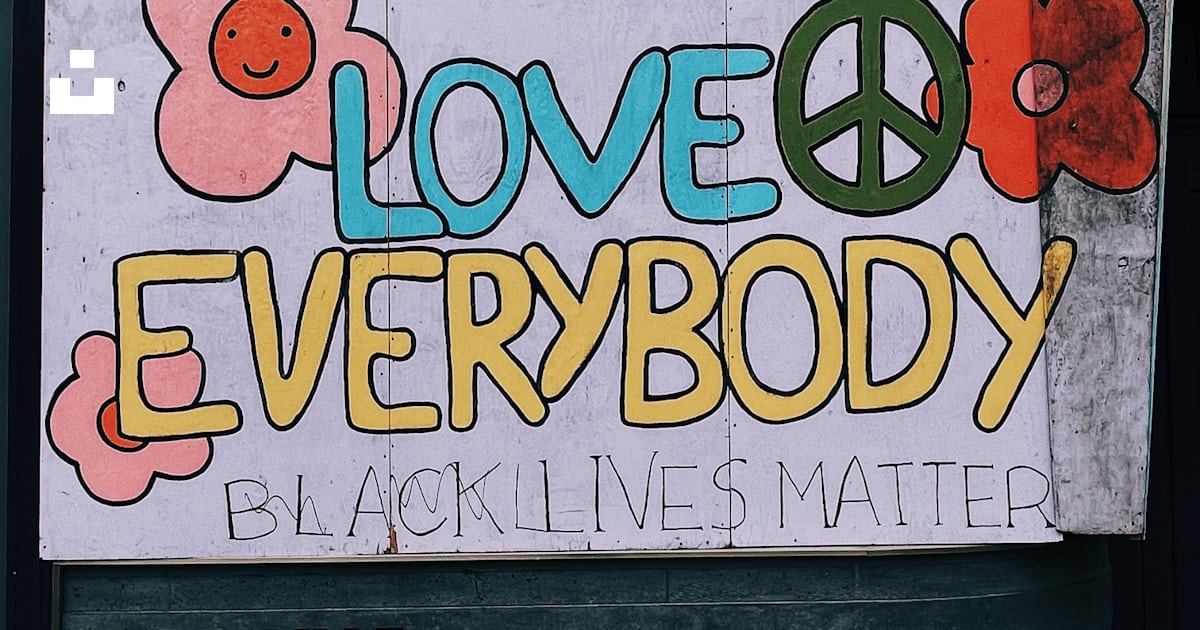 LOVE
EVERYBODY
BLACK LLIVES MATTER